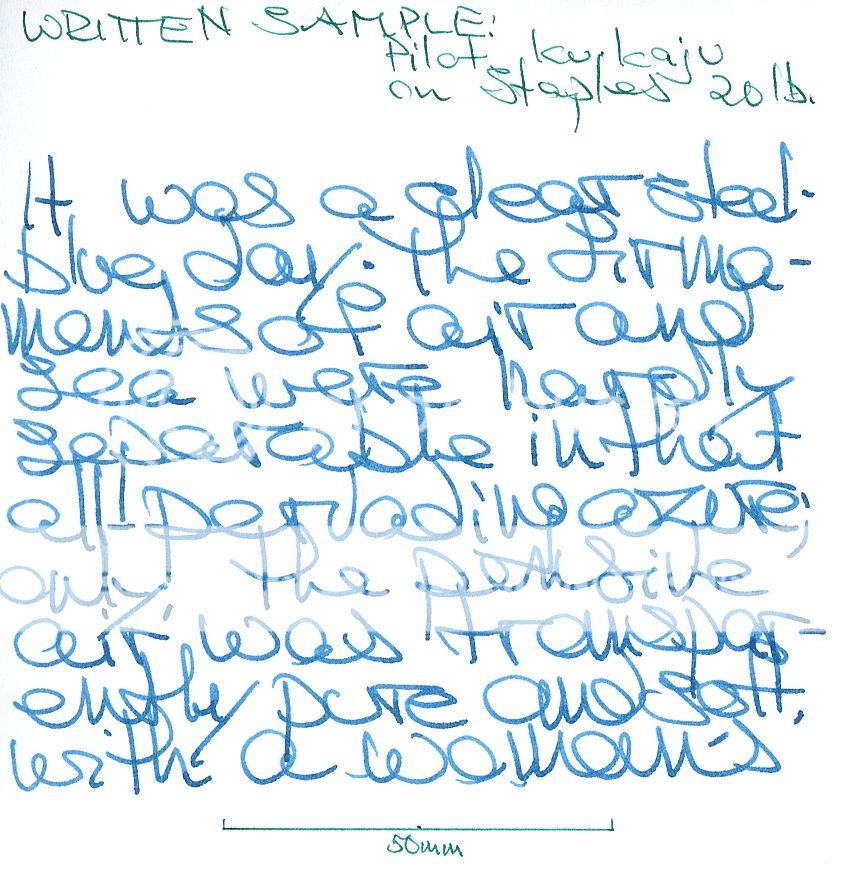 WRITTEN SAMPLE:
Pilot ku-kaju
on Staples 20 lb.
It was a clear steel-
blue day. The firma-
ments of air and
sea were hardly
separable in that
all-pervading azure;
only the pensive
air was transpar-
ently pure and soft,
with a woman's
50mm